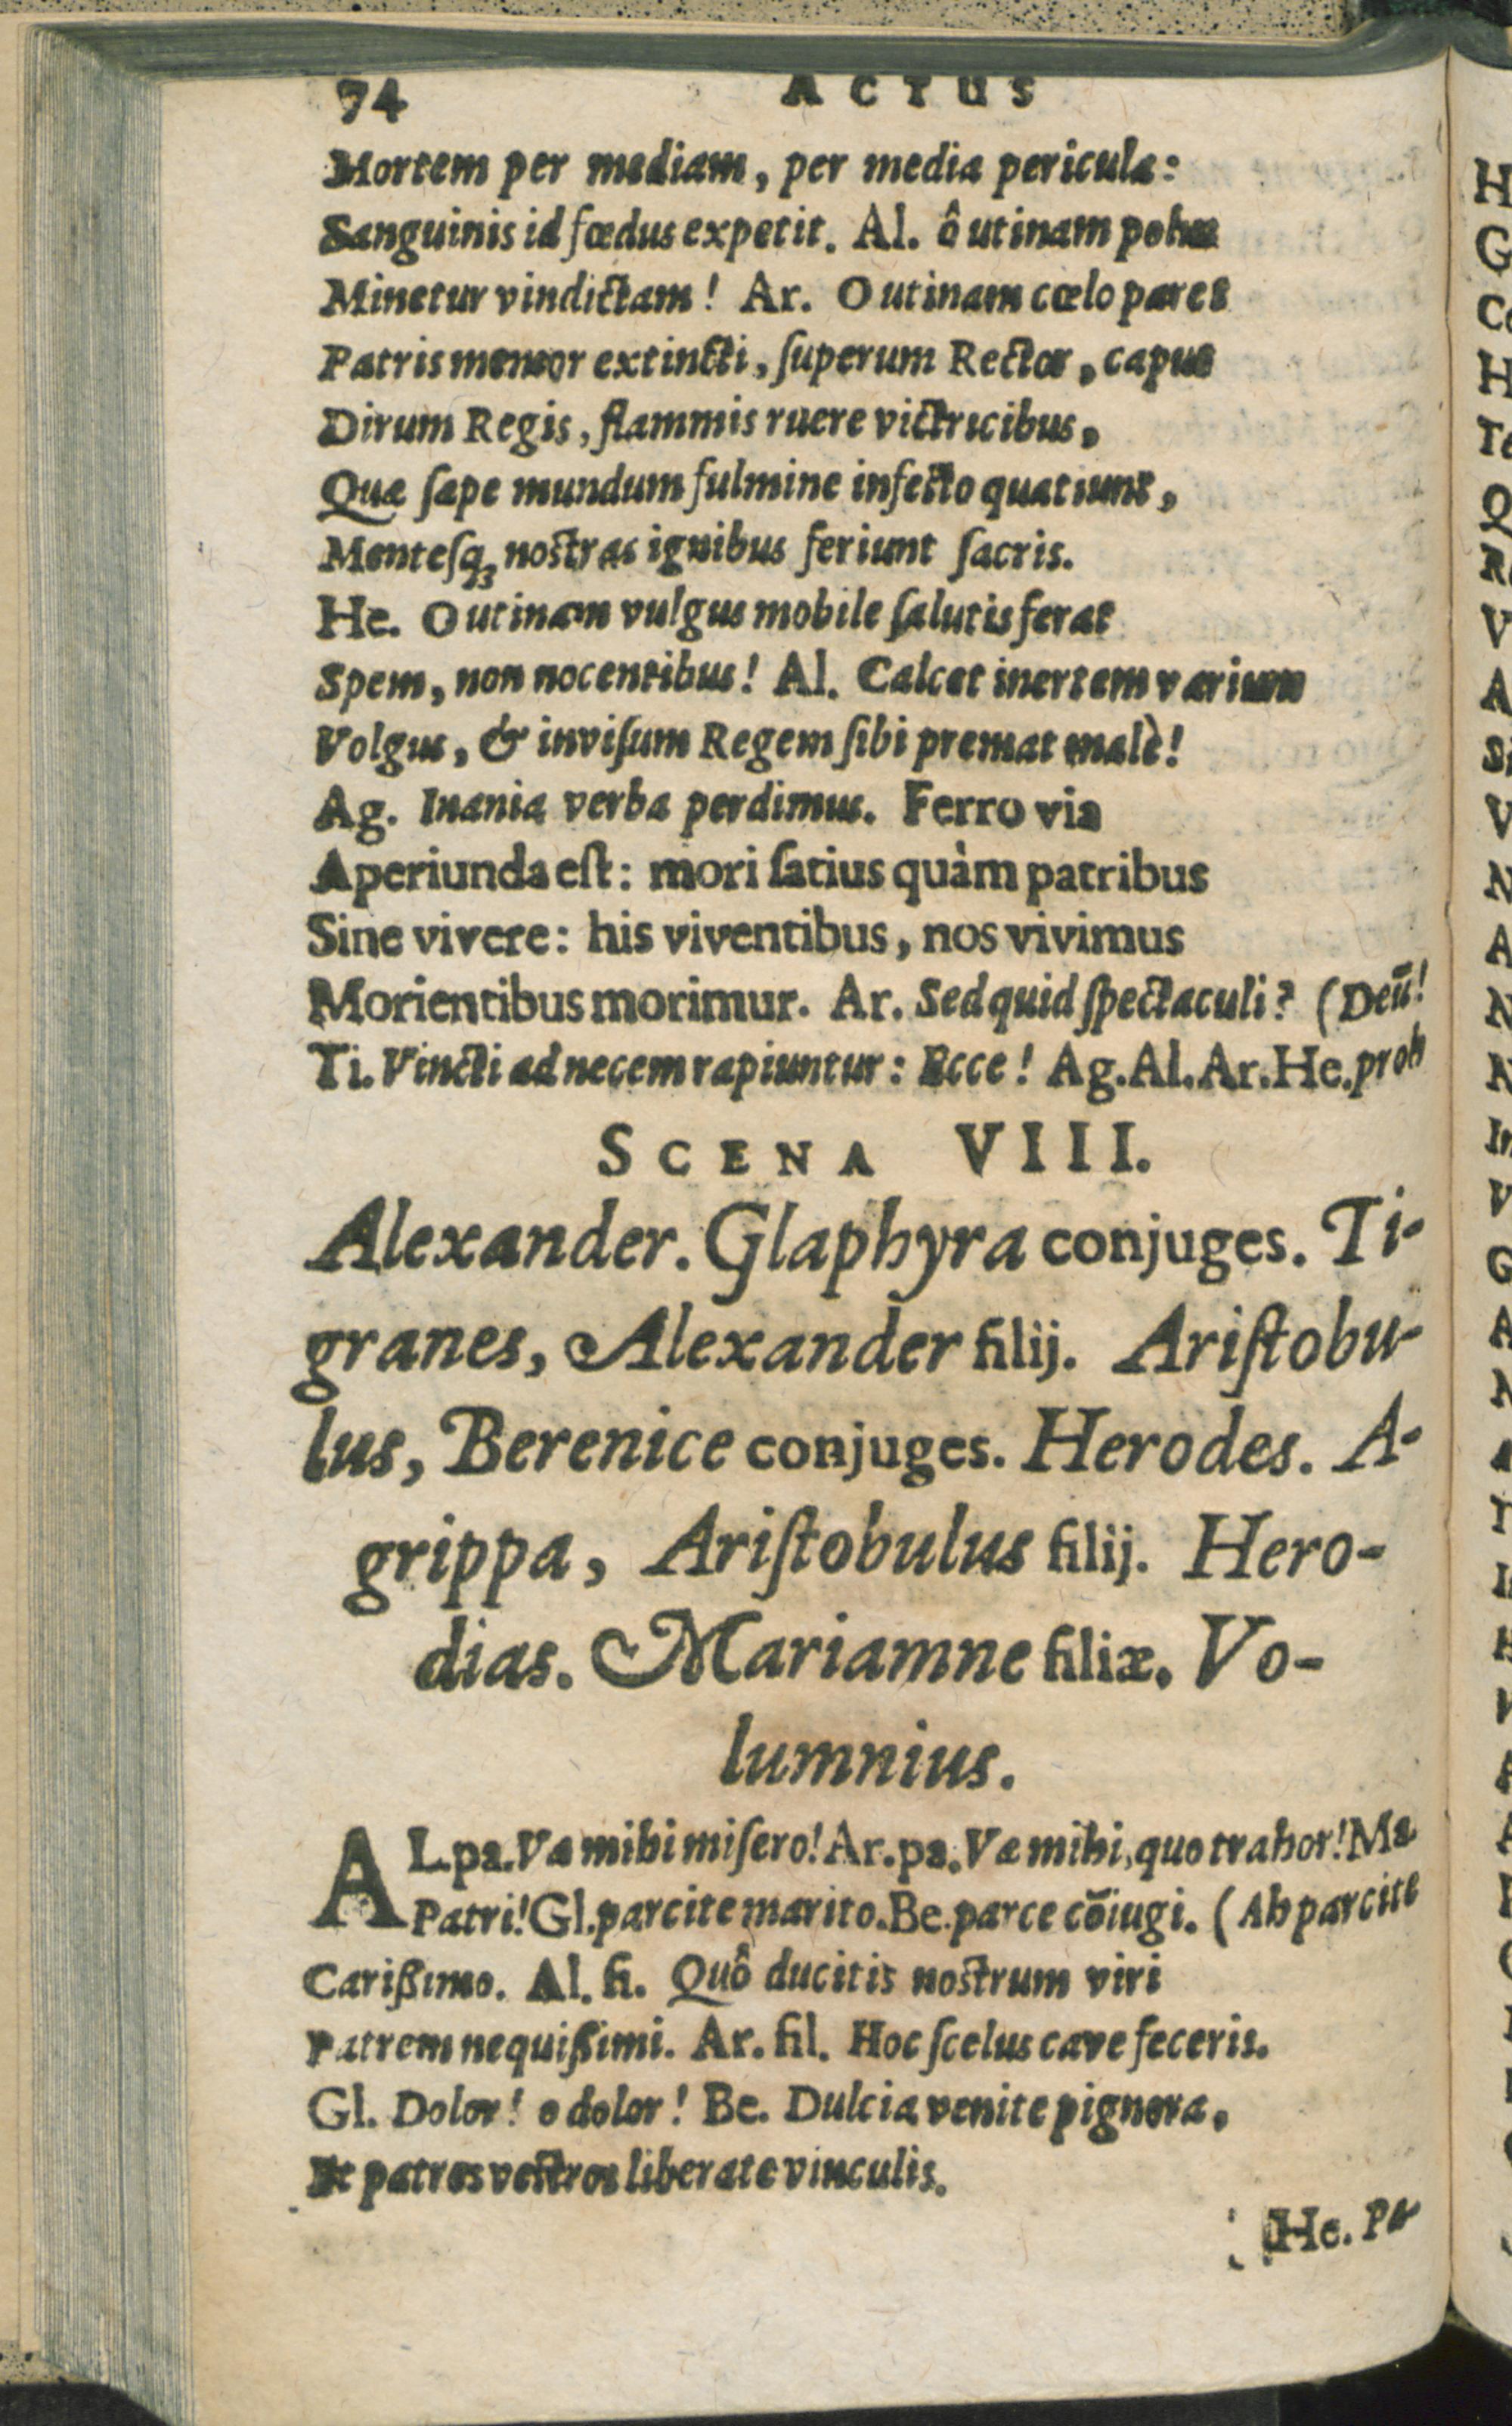 74 ACTUS
Mortem per mediam, per media pericula:
Sanguinis id fœdus expetit. Al. ô utinam
Minetur vindictam! Ar. O utinam cœlo pares
Patris memor extincti, ſuperum Rector, caput
Dirum Regis, flammis ruere victricibus,
Quæ ſæpe mundum fulmine infecto quatiunt,
Menteſq; nostras ignibus feriunt ſacris.
He. O utinam vulgus mobile ſalutis ferat
Spem, non nocentibus! Al. Calcet inertem varium
Volgus, & inviſum Regem ſibi premat malè!
Ag. Inania verba perdimus. Ferro via
Aperiunda eſt: mori ſatius quàm patribus
Sine vivere: his viventibus, nos vivimus
Morientibus morimur. Ar. Sed quid ſpectaculi? (Deū!
Ti. Vincti ad necem rapiuntur: Ecce! Ag. Al. Ar. He. proh
SCENA VIII.
Alexander. Glaphyra conjuges. Ti-
granes, Alexander filij. Ariſtobu-
lus, Berenice conjuges. Herodes. A-
grippa, Ariſtobulus filij. Hero-
dias. Mariamne filiæ. Vo-
lumnius.
AL. pa. Væ mihi miſero! Ar. pa. Væ mihi, quo trahor! Ma
Patri! Gl. parcite marito. Be. parce cōiugi. (Ah parcite
Carißimo. Al. fi. Quô ducitis nostrum viri
Patrem nequißimi. Ar. fil. Hoc ſcelus cave feceris.
Gl. Dolor! o dolor! Be. Dulcia venite pignora,
Et patres vestros liberate vinculis.
He. Pa-